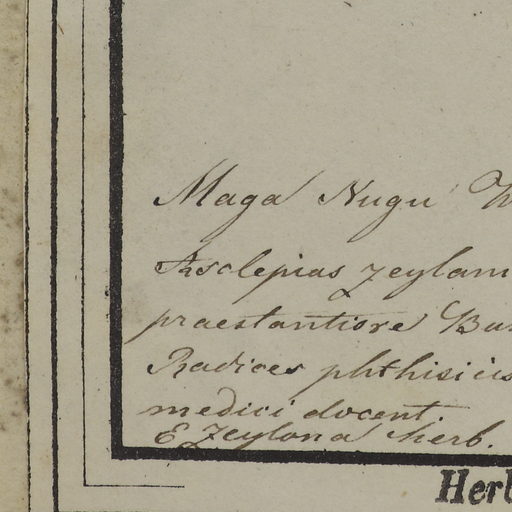 Maga Nugu
Asclepias zeylan
praestantiore Bu
Radices phthisicis
medici docent.
E Zeylona herb.
Herb